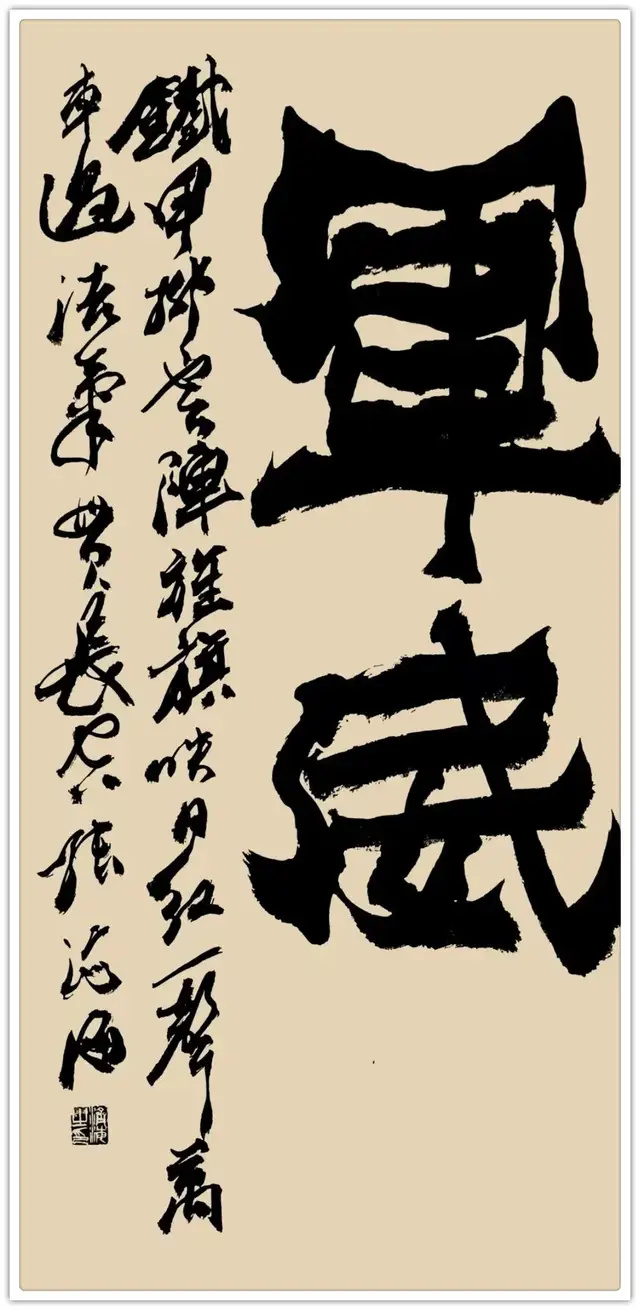 軍威
鐵甲排雲陣旌旗映日紅一聲萬
車過浩氣貫長空張海